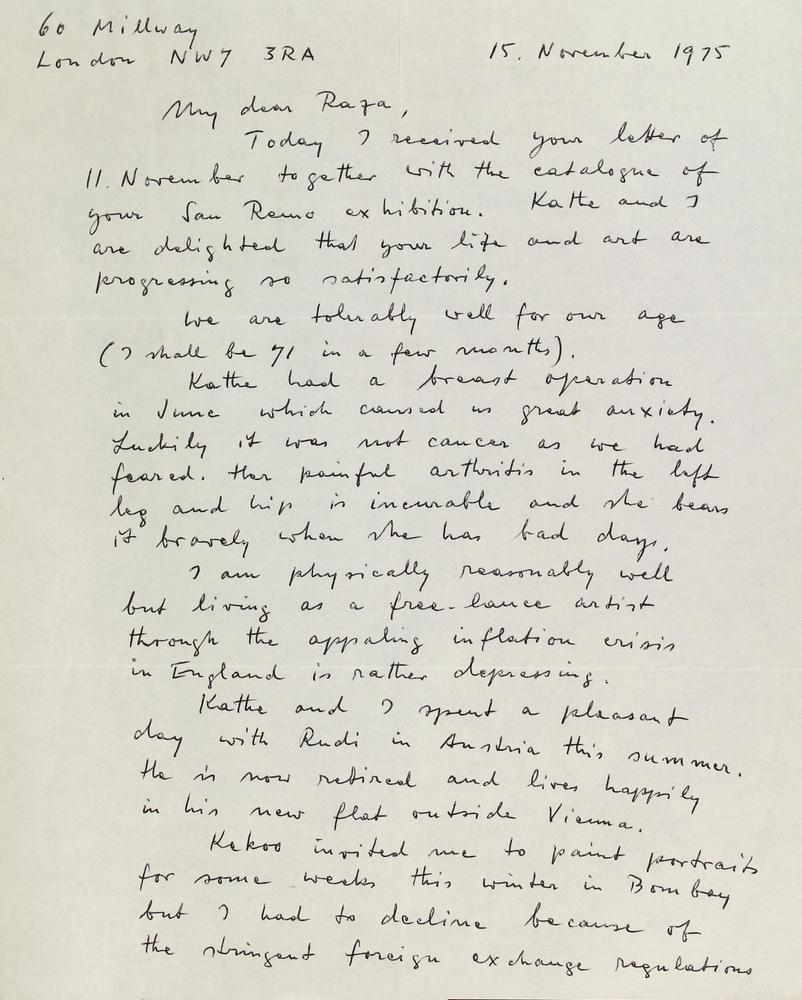 60 Millway
London NW7 3RA 15. November 1975
My dear Raza,
Today I received your letter of
11. November together with the catalogue of
your San Remo exhibition. Kathe and I
are delighted that your life and art are
progressing so satisfactorily.
We are tolerably well for our age
(I shall be 71 in a few months).
Kathe had a breast operation
in June which caused us great anxiety.
Luckily it was not cancer as we had
feared. Her painful arthritis in the left
leg and hip is incurable and she bears
it bravely when she has bad days.
I am physically reasonably well
but living as a free-lance artist
through the appaling inflation crisis
in England is rather depressing.
Kathe and I spent a pleasant
day with Rudi in Austria this summer.
He is now retired and lives happily
in his new flat outside Vienna.
Kekoo invited me to paint portraits
for some weeks this winter in Bombay
but I had to decline because of
the stringent foreign exchange regulations